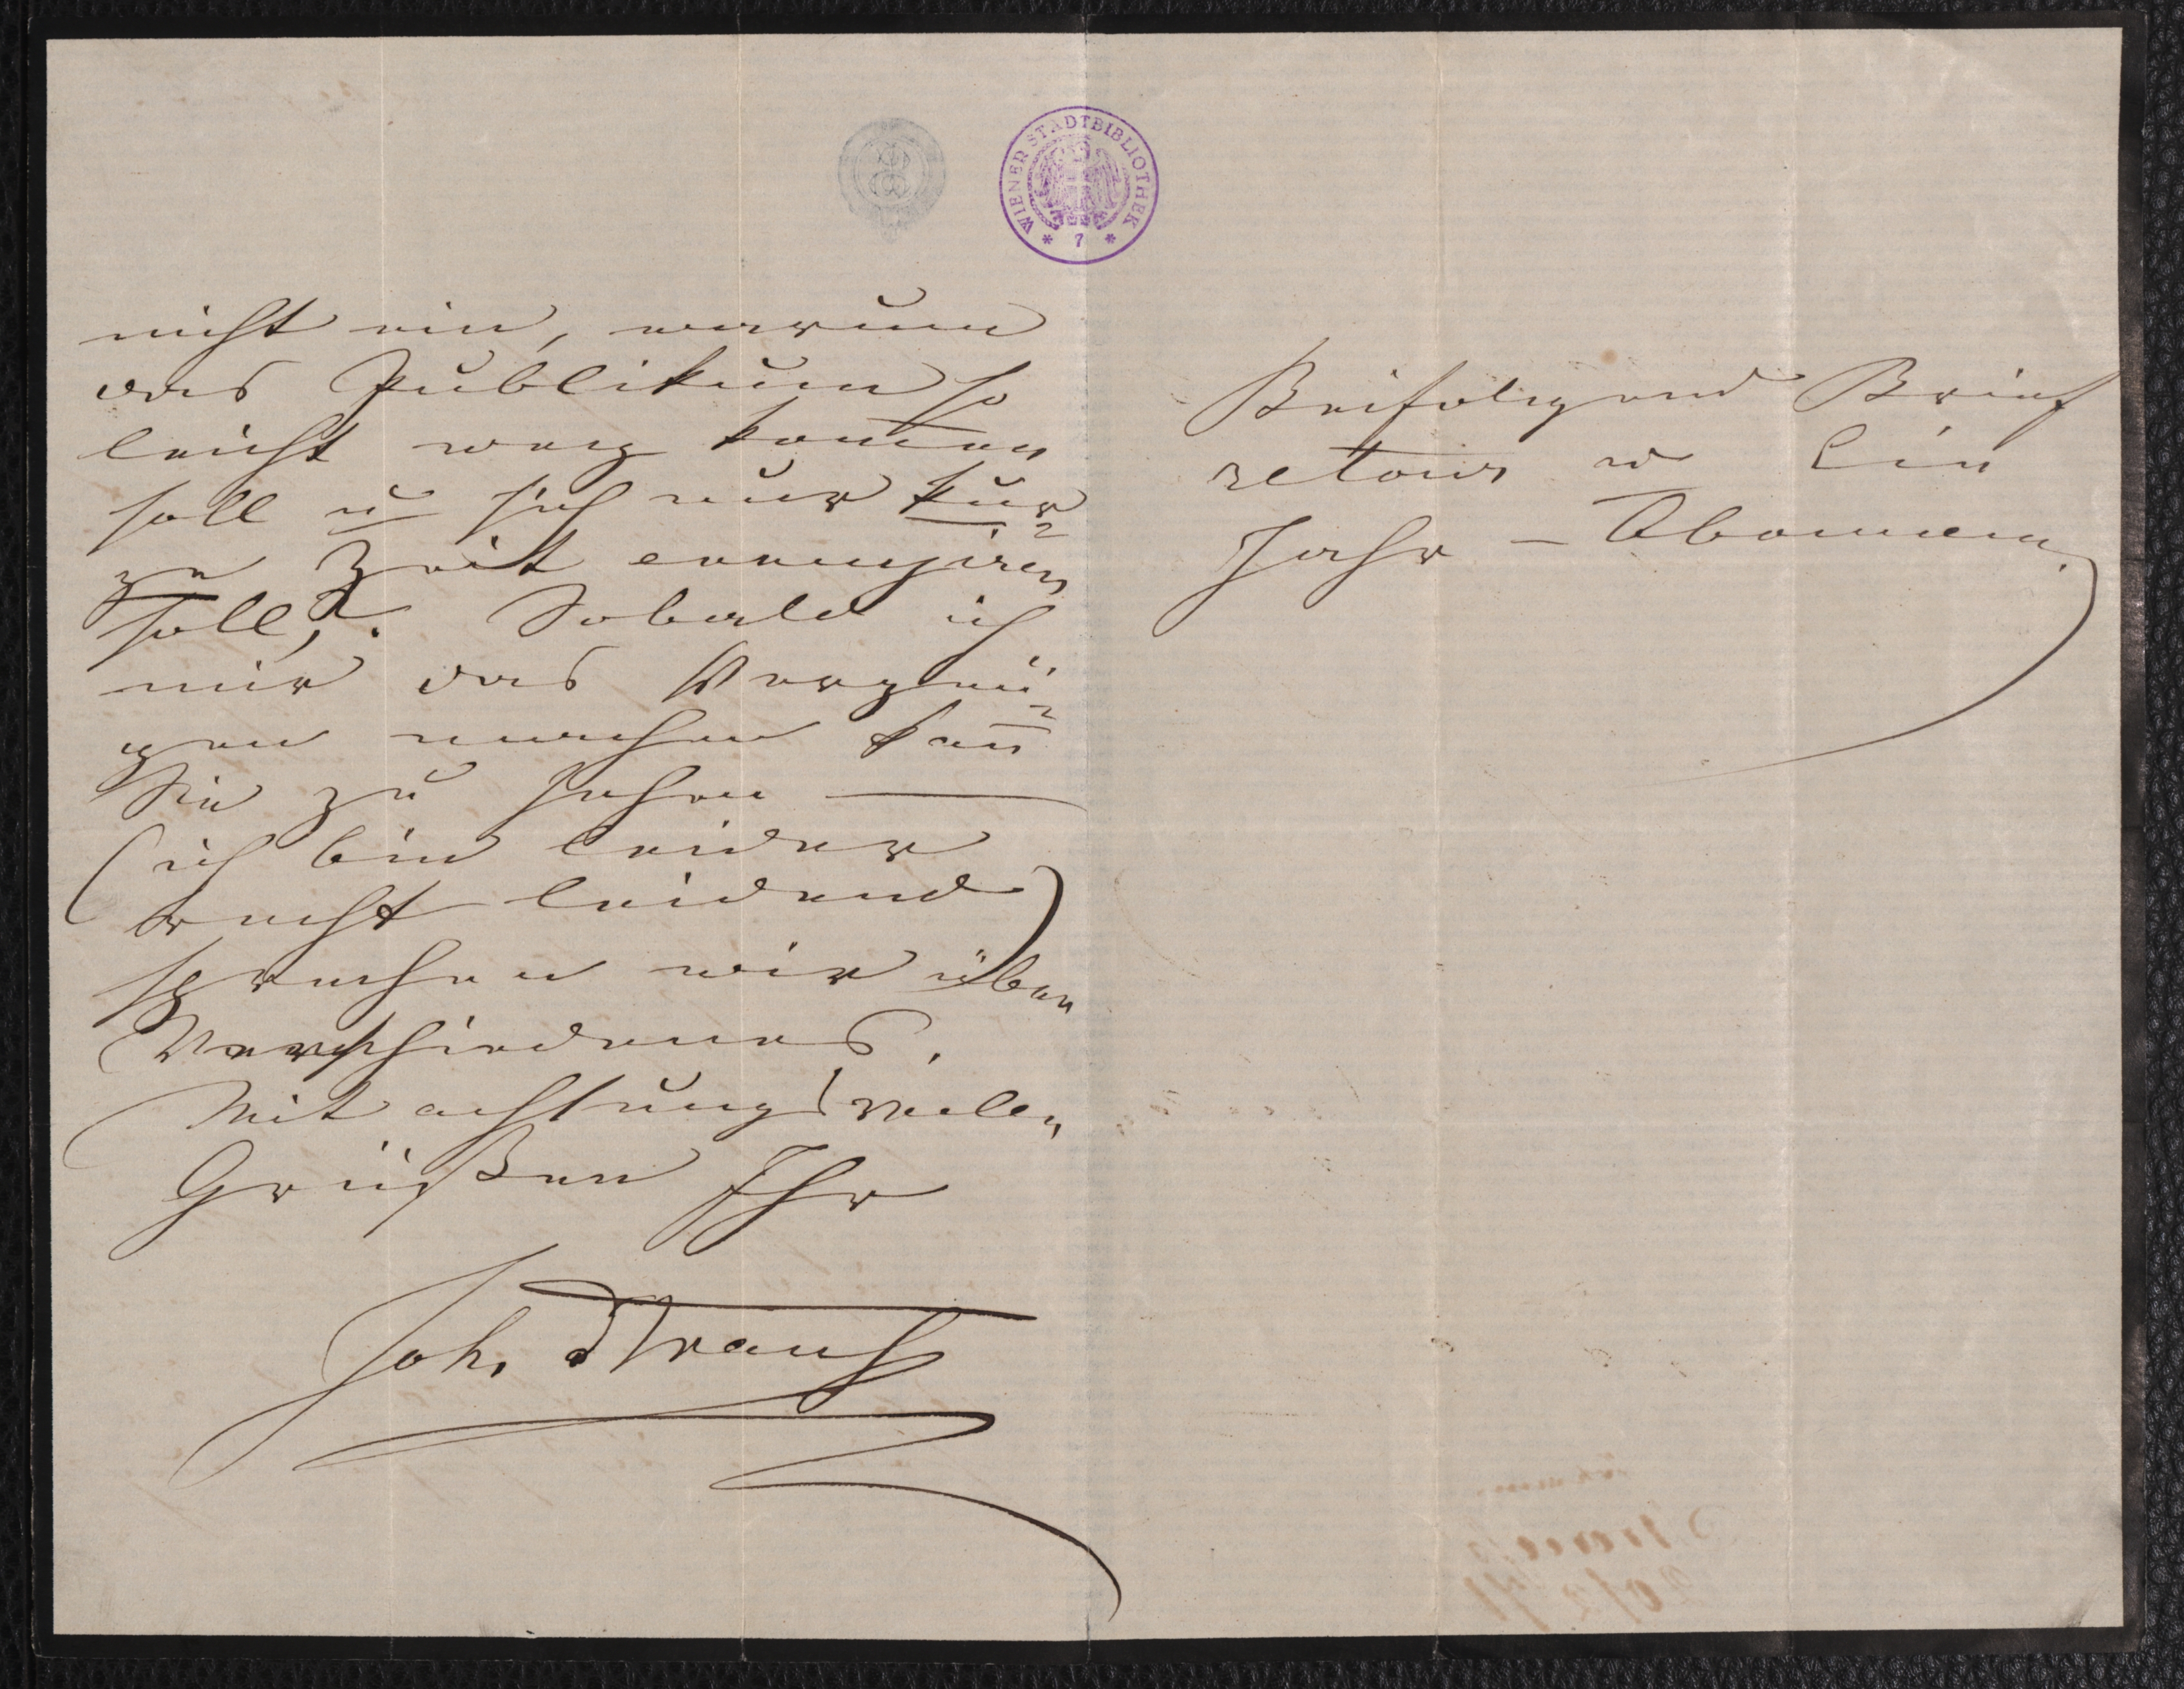 WIENER STADTBIBLIOTHEK
* 7 *
nicht ein, warum
das Publikum so
leicht weg kom̅en
soll u sich nur kur=
ze Zeit ennuyiren
soll,? Sobald ich
mir das Vergnü=
gen machen kan̅
Sie zu sehen —
(ich bin leider
recht leidend)
sprechen wir über
Verschiedenes.
Mit achtungsvollen
Grüßen Ihr
Joh. Strauß
Beifolgend Brief
retour u Ein
Jahr – Abonnem.